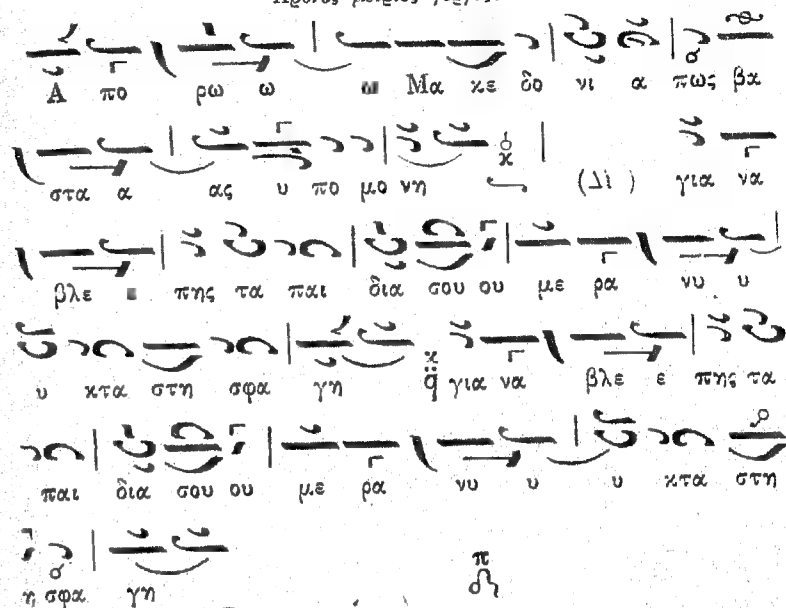 Α πο ρω ω ω Μα κε δο νι α πως βα
στα α ας υ πο μο νη (Δι) για να
βλε ε πης τα παι δια σου ου με ρα νυ υ
υ κτα στη σφα γη για να βλε ε πης τα
παι δια σου ου με ρα νυ υ υ κτα στη
η σφα γη